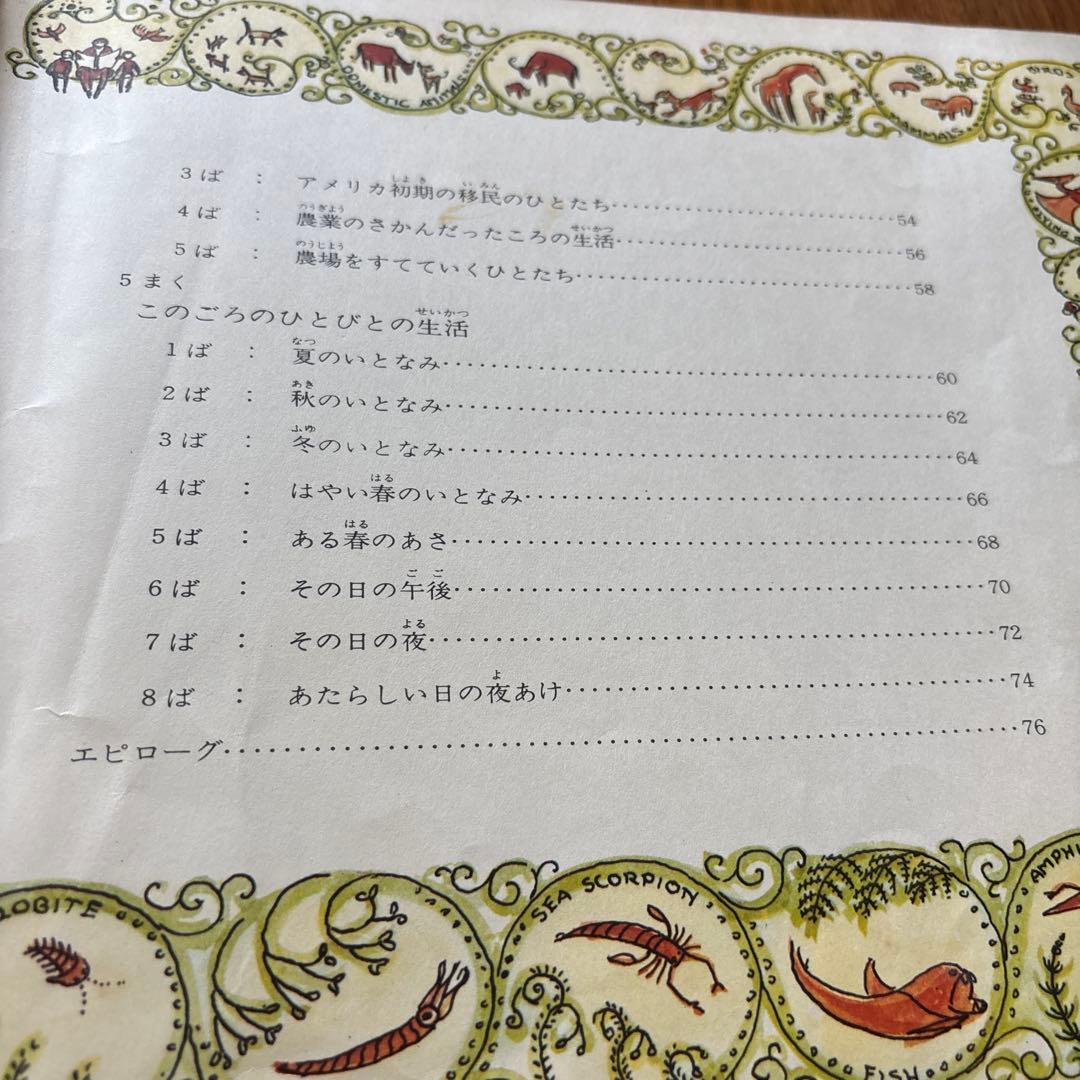 DOMESTIC ANIMALS
MAMMALS
3ば : アメリカ初期の移民のひとたち 54
4ば : 農業のさかんだったころの生活 56
5ば : 農場をすてていくひとたち 58
5まく
このごろのひとびとの生活
1ば : 夏のいとなみ 60
2ば : 秋のいとなみ 62
3ば : 冬のいとなみ 64
4ば : はやい春のいとなみ 66
5ば : ある春のあさ 68
6ば : その日の午後 70
7ば : その日の夜 72
8ば : あたらしい日の夜あけ 74
エピローグ 76
LOBITE
SEA SCORPION
FISH
AMPHI